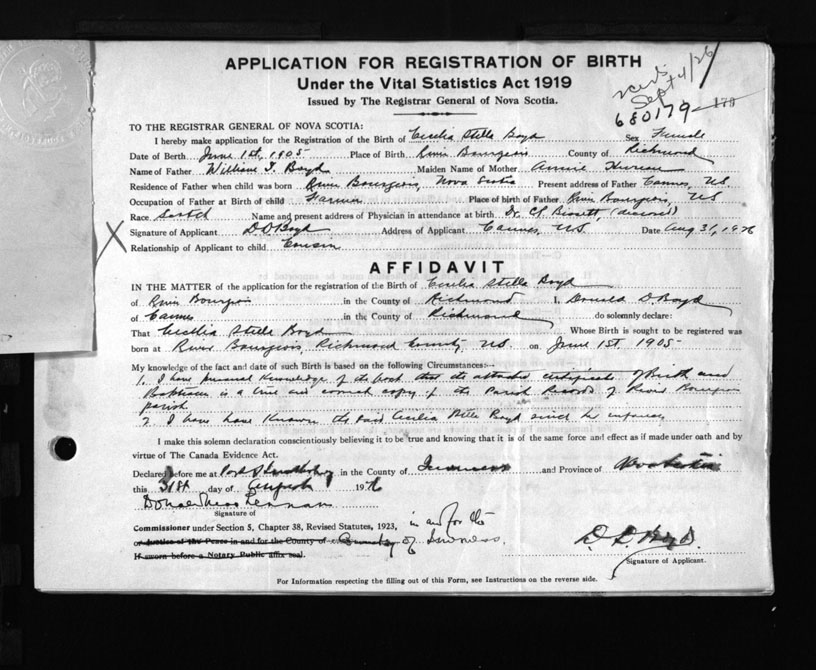 APPLICATION FOR REGISTRATION OF BIRTH
Under the Vital Statistics Act 1919
Issued by The Registrar General of Nova Scotia.
Sept 4/26
680179 179
TO THE REGISTRAR GENERAL OF NOVA SCOTIA:
I hereby make application for the Registration of the Birth of Cecilia Stella Boyd Sex Female
Date of Birth June 1st, 1905 Place of Birth River Bourgeois County of Richmond
Name of Father William J. Boyd Maiden Name of Mother Annie
Residence of Father when child was born River Bourgeois, Nova Scotia Present address of Father Cannes, N.S.
Occupation of Father at Birth of child Farmer Place of birth of Father River Bourgeois, N.S
Race Scotch Name and present address of Physician in attendance at birth Dr. C.J. Bissett, (deceased)
Signature of Applicant D.D. Boyd Address of Applicant Cannes, N.S. Date Aug 31, 1926
Relationship of Applicant to child Cousin
AFFIDAVIT
IN THE MATTER of the application for the registration of the Birth of Cecilia Stella Boyd
of River Bourgeois in the County of Richmond I, Donald D. Boyd
of Cannes in the County of Richmond do solemnly declare:
That Cecilia Stella Boyd Whose Birth is sought to be registered was
born at River Bourgeois, Richmond County, N.S. on June 1st 1905
My knowledge of the fact and date of such Birth is based on the following Circumstances:—
1. I have personal knowledge of the fact that the attached certificate of Birth and
Baptism is a true and correct copy of the Parish Records of River Bourgeois
parish
2. I have known the said Cecilia Stella Boyd since her infancy
I make this solemn declaration conscientiously believing it to be true and knowing that it is of the same force and effect as if made under oath and by
virtue of The Canada Evidence Act.
Declared before me at Port Hastings in the County of Inverness and Province of Nova Scotia
this 31st day of August 1926
Signature of
Commissioner under Section 5, Chapter 38, Revised Statutes, 1923, in and for the
or Justice of the Peace in and for the County of County of Inverness.
If sworn before a Notary Public affix seal.
D. D. Boyd.
Signature of Applicant.
For Information respecting the filling out of this Form, see Instructions on the reverse side.